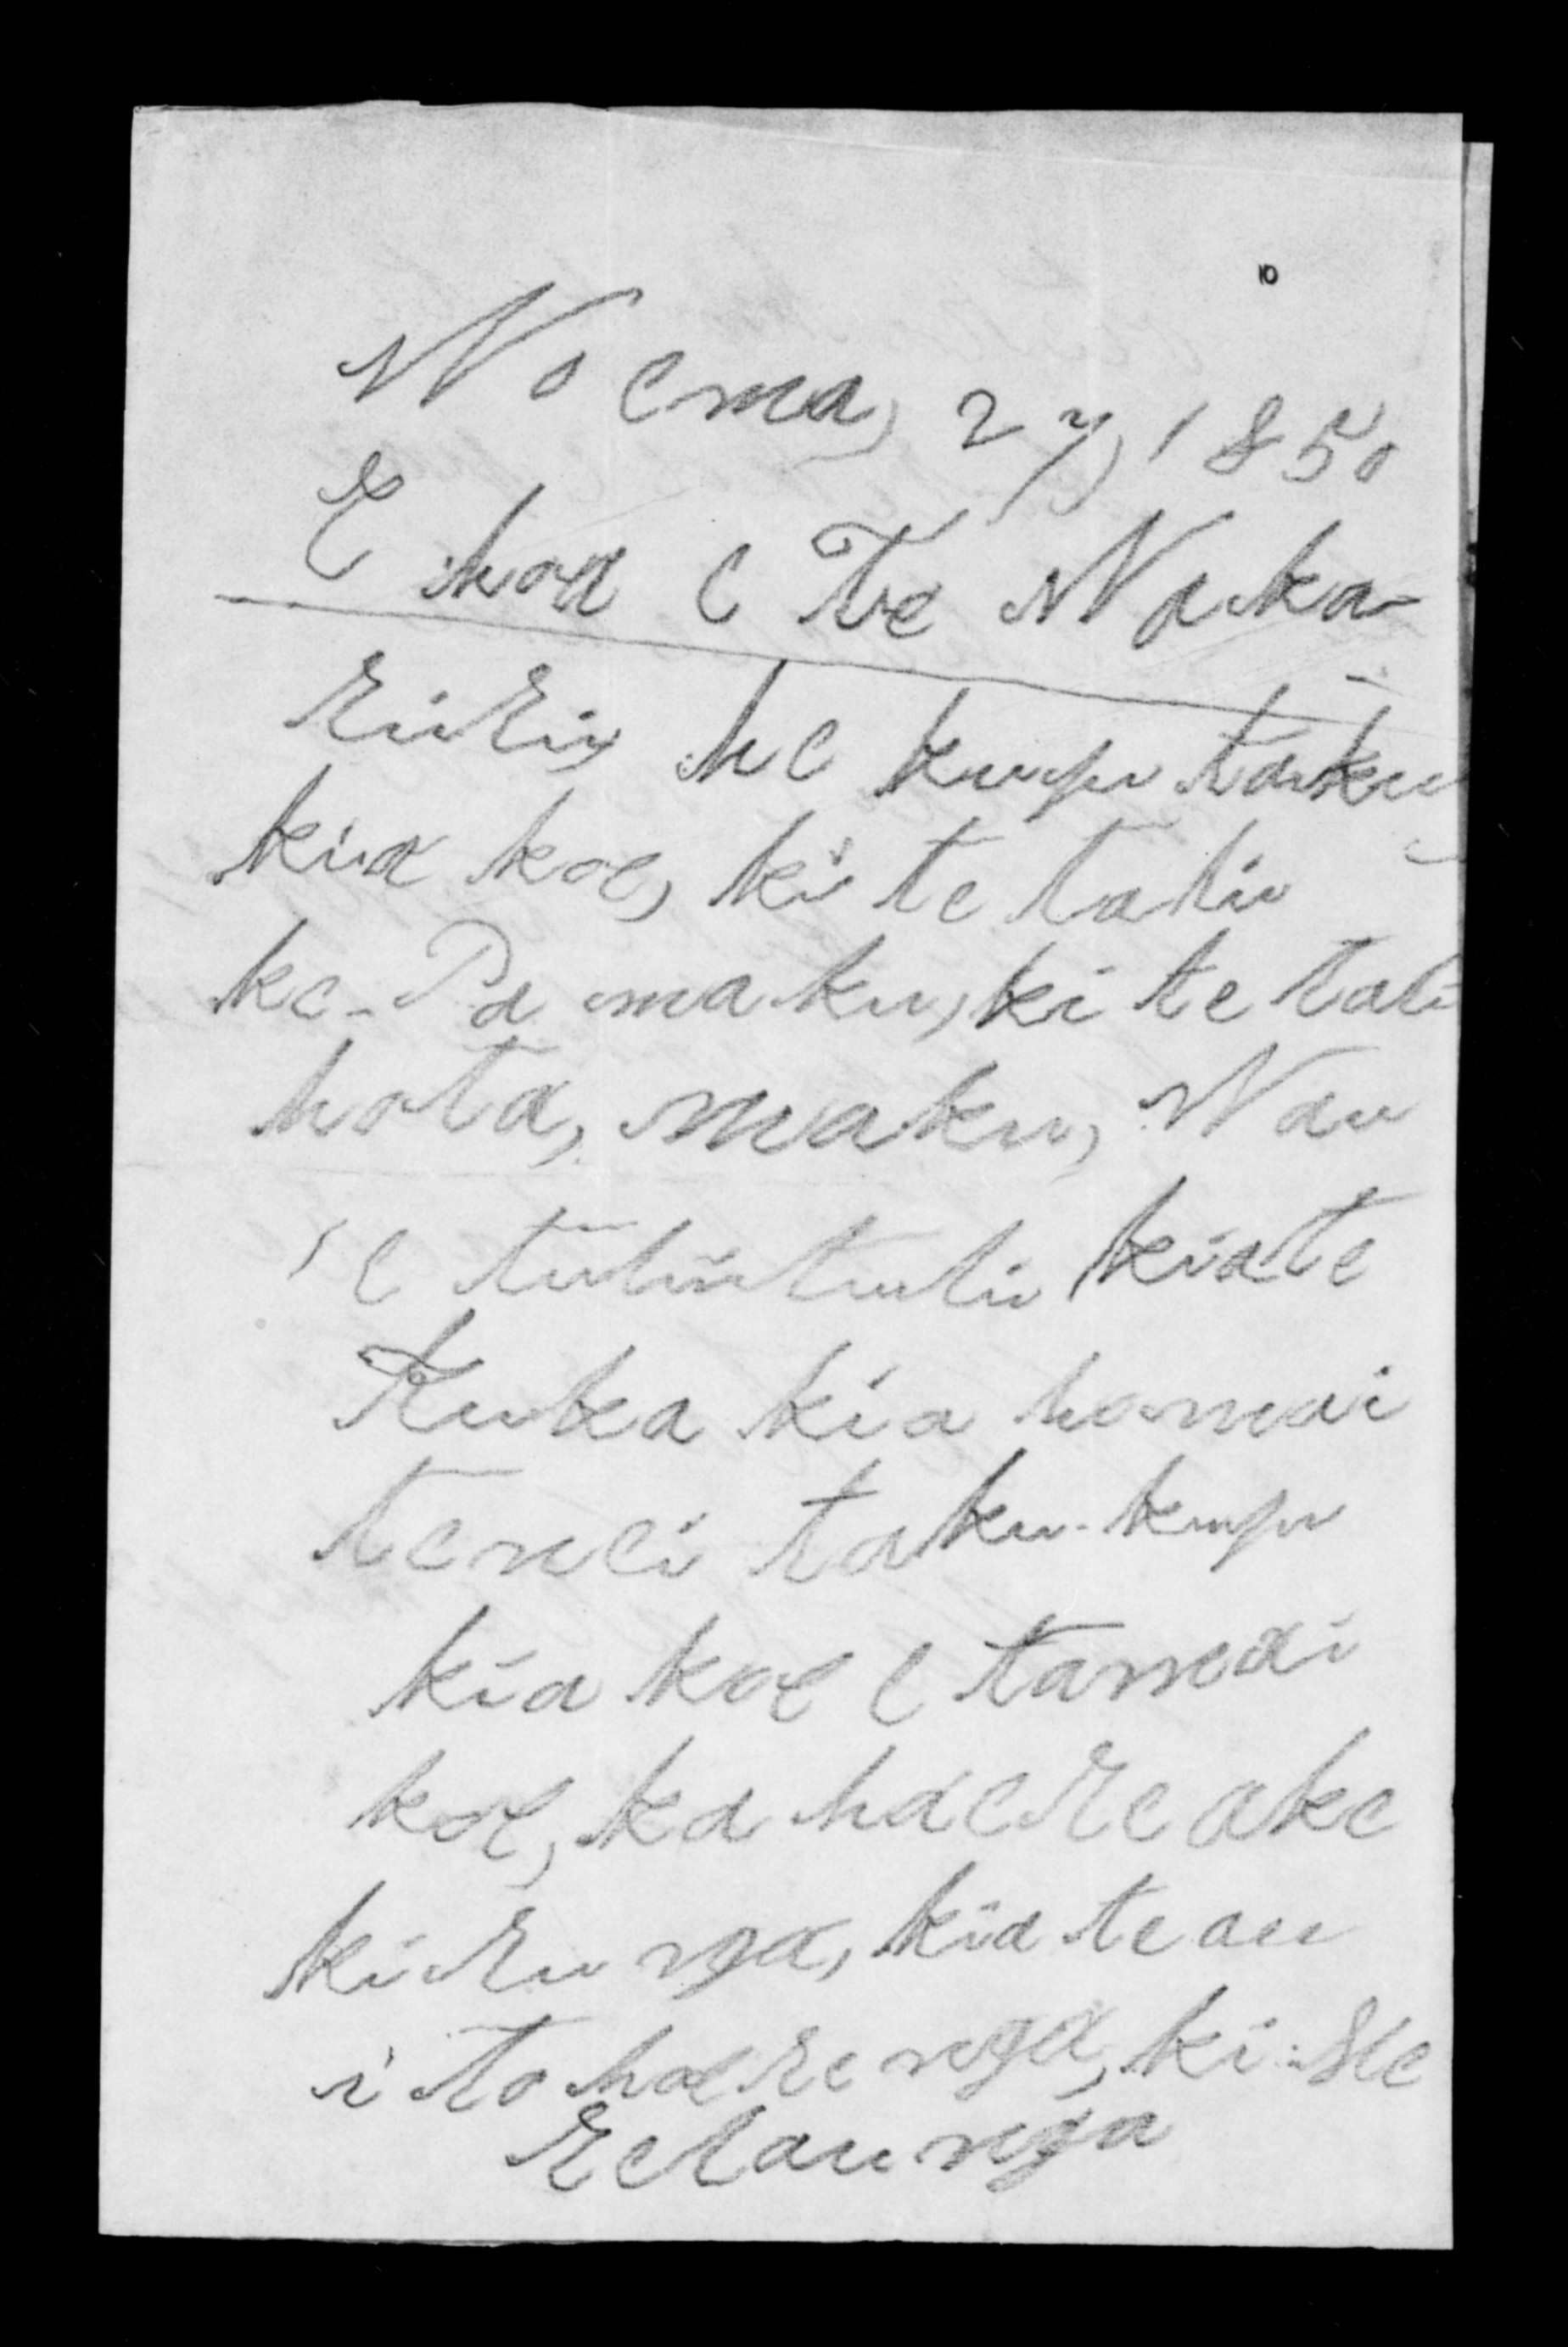 10
Noema, 27, 1850
E hoa e Te Maka-
ririi, he kupu taku
kia koe, ki te tahi
ke-Pa maku, ki te tahi
hota, maku, Nau
e tuhituhi kiate
Kuka kia homai
tenei taku-kupu
kia koe e tama i
koe, ka haere ake
ki runga, kia te au
i to haerenga, ki He
retaunga